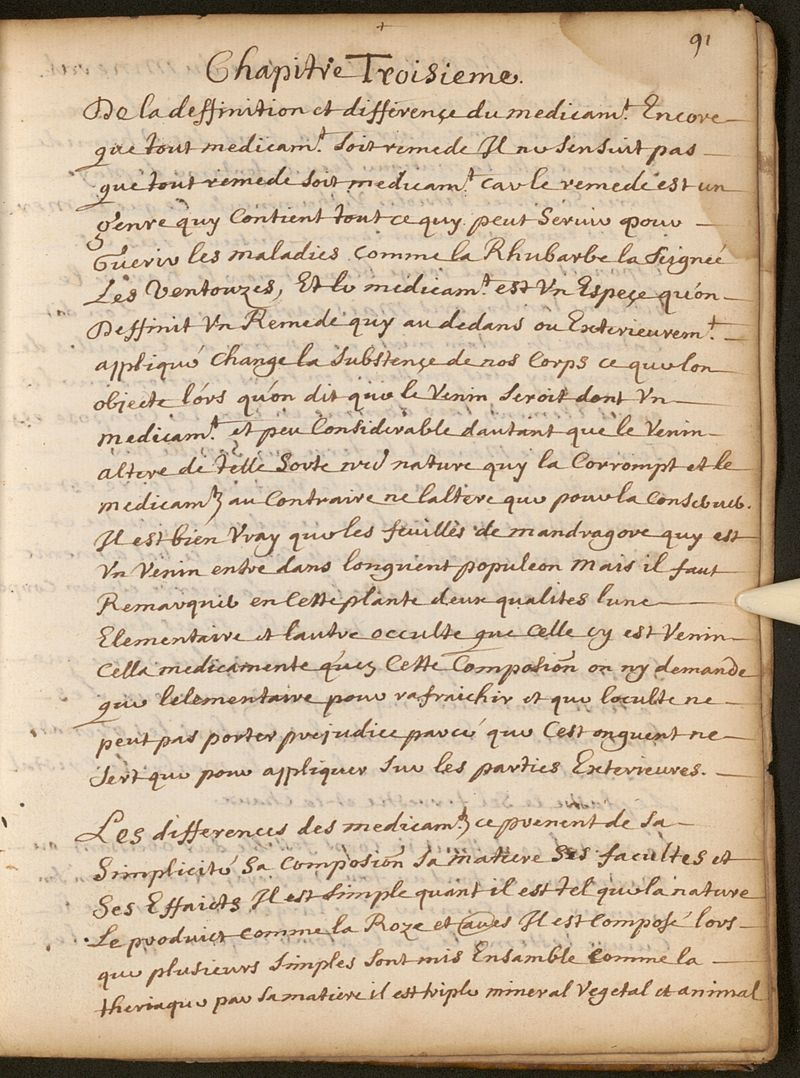 91
Chapitre Troisieme.
De la deffinition et differençe du medicamt. Encore
que tout medicamt. soit remede Il ne sensuit pas
que tout remede soit medicamt. car le remede est un
genre quy Contient tout ce quy peut Servir pour
Guerir les maladies comme la Rhubarbe la Seignée
Les Ventouzes, Et le medicamt. est Vn Espeçe qu'on
Deffinit Vn Remede quy au dedans ou Exterieuremt.
appliqué Change la Substençe de nos Corps ce que lon
objecte lórs qu'on dit que le Venin seroit dont Vn
medicamt. et peu Considerable dautant que le Venin
altere de telle Sorte nre nature quy la Corrompt et le
medicamt au Contraire ne laltere que pour la Conserver.
Il est bien Vray que les feuilles de mandragore quy est
Vn Venin entre dans longuent populeon mais il faut
Remarquer en Cette plante deux qualites lune
Elementaire et lautre occulte que Celle cy est Venin
Cella medicamente qu'en Cette Composion on ny demande
que lelementaire pour rafraichir et que loculte ne
peut pas porter prejudice parcé que Cest onguent ne
sert que pour appliquer sur les parties Exterieures.
Les differences des medicamt ce prenent de sa
Simplicité sa Composion sa matiere Ses facultes et
Ses Effaicts Il est Simple quant il est tel que la nature
Le produict comme la Roze et Il est Composé lors
que plusieurs simples sont mis Ensamble comme la
theriaque par sa matiere il est triple mineral Vegetal et animal